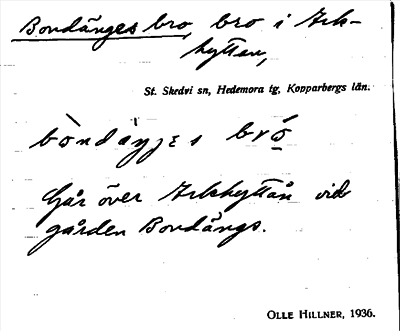 Bondänges bro, bro i Ark-
hyttan,
St. Skedvi sn, Hedemora tg, Kopparbergs län.
bòndàŋʒɛs bró
Går över Arkhyttån vid
gården Bondängs.
OLLE HILLNER, 1936.